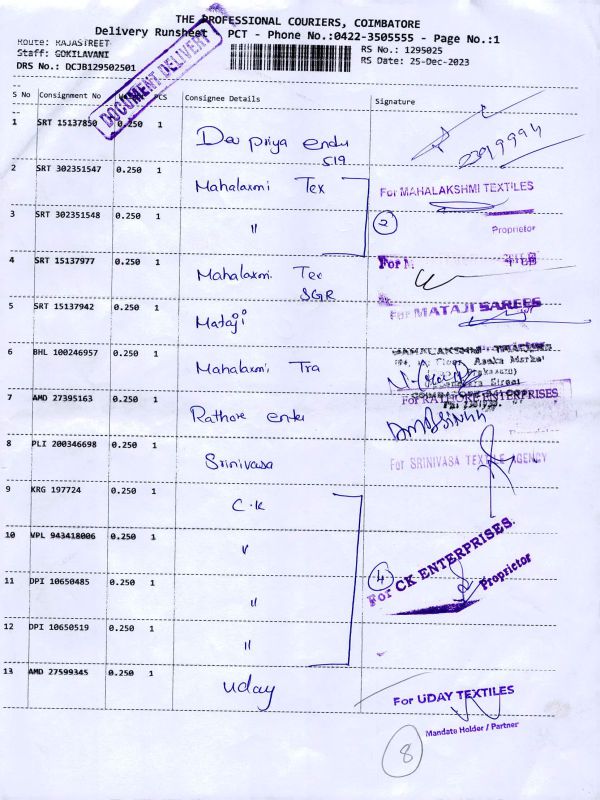 THE PROFESSIONAL COURIERS, COIMBATORE
Delivery Runsheet PCT - Phone No.:0422-3505555 - Page No.:1
Route: RAJASTREET
RS No.: 1295025
Staff: GOKILAVANI
RS Date: 25-Dec-2023
DRS No.: DCJB129502501
DOCUMENT DELIVERY
S No Consignment No PCS Consignee Details Signature
1 SRT 15137850 0.250 1 Dev priya endu
519
2 SRT 302351547 0.250 1 Mahalaxmi Tex For MAHALAKSHMI TEXTILES
3 SRT 302351548 0.250 1 " 2 Proprietor
4 SRT 15137977 0.250 1 Mahalaxmi Tex For
SGR
5 SRT 15137942 0.250 1 Mataji For MATAJI SAREES
6 BHL 100246957 0.250 1 Mahalaxmi Tra MAHALAKSHMI TRADERS
7 AMD 27395163 0.250 1 Rathore enter For RATHORE ENTERPRISES
8 PLI 200346698 0.250 1 Srinivasa For SRINIVASA TEXTILE AGENCY
9 KRG 197724 0.250 1 C.K
10 VPL 943418006 0.250 1 " For CK ENTERPRISES.
11 DPI 10650485 0.250 1 " 4 Proprietor
12 DPI 10650519 0.250 1 "
13 AMD 27599345 0.250 1 Uday For UDAY TEXTILES
Mandate Holder / Partner
8